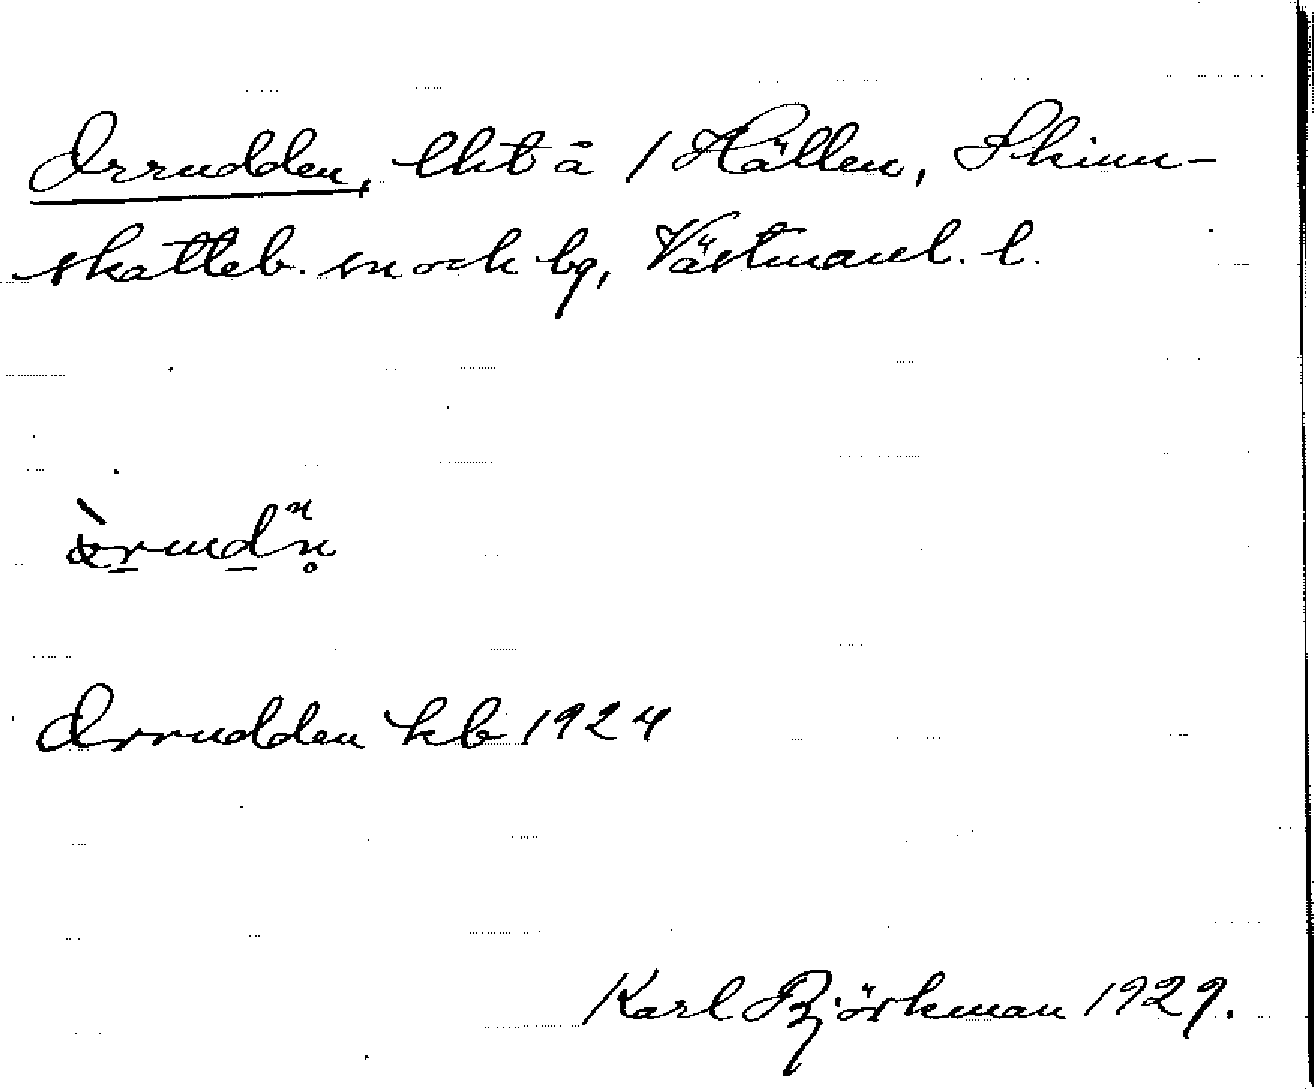 Orrudden, lht å 1 Hällen, Skinn-
skatteb. sn och bg, Västmanl. l.
Orrudden kb 1924
Karl Björkman 1929.